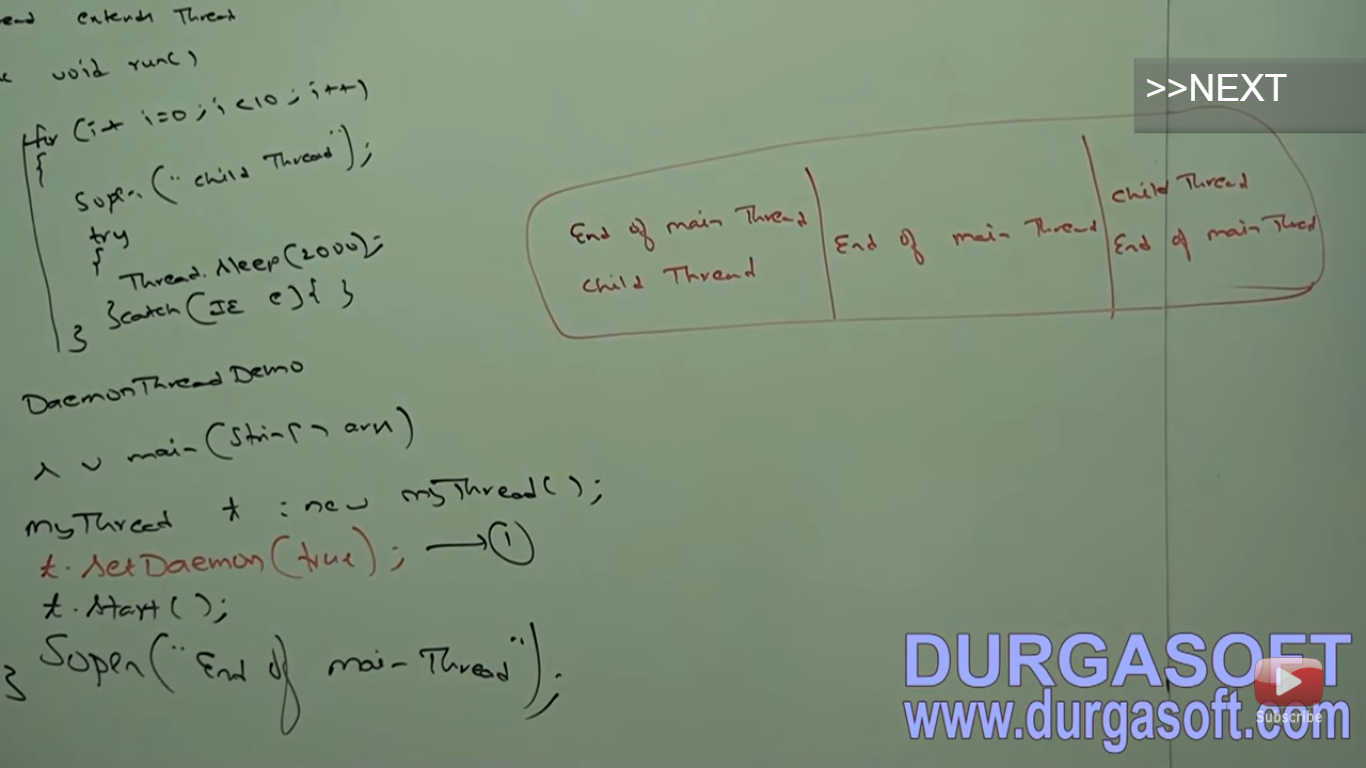 extends Thread
void run()
for (int i=0; i<10; i++)
{
Sopln("child Thread");
try
{
Thread.sleep(2000);
}catch(IE e){ }
}
DaemonThreadDemo
main(String
myThread t = new myThread();
t.setDaemon(true); → 1
t.start();
Sopln("End of main Thread");
}
End of main Thread
child Thread
End of main Thread
child Thread
End of main Thread
>>NEXT
DURGASOFT
www.durgasoft.com
Subscribe